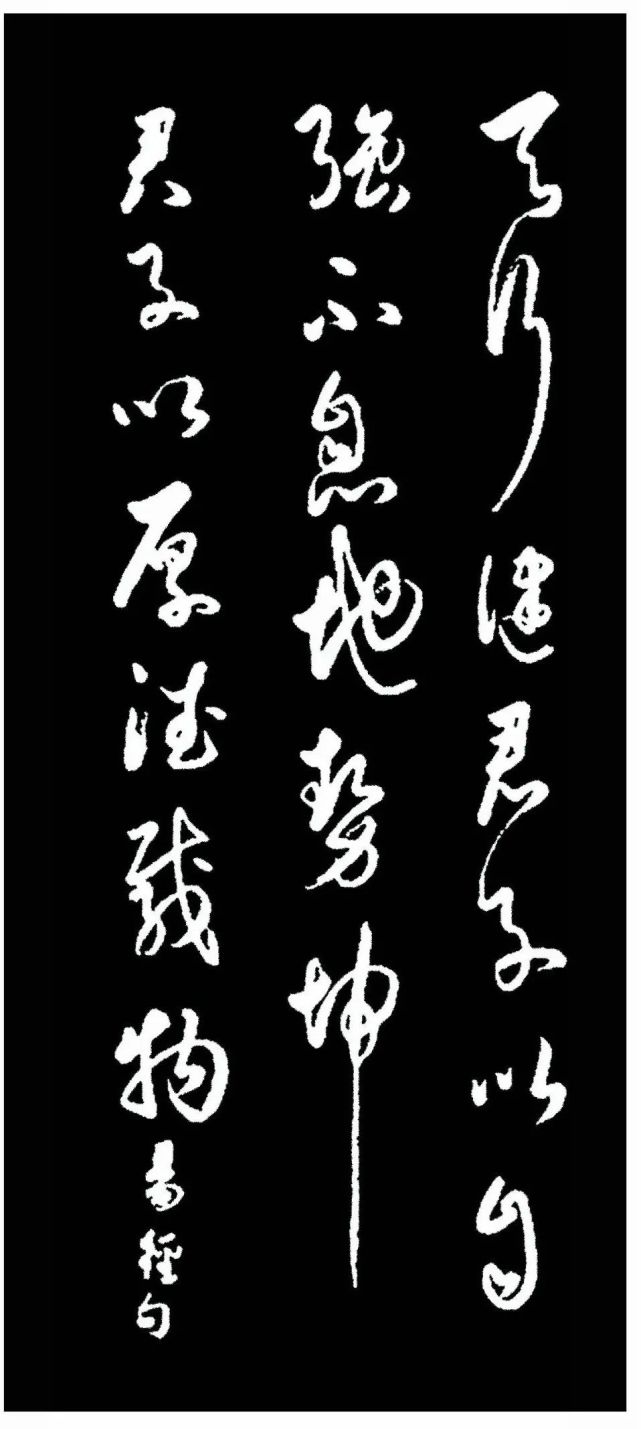 天行健君子以自
強不息地勢坤
君子以厚德載物
易經句